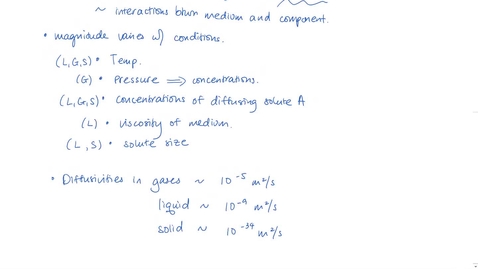 ~ interactions btwn medium and component.
• magnitude varies w/ conditions.
(L,G,S) • Temp.
(G) • Pressure ⟹ concentrations.
(L,G,S) • concentrations of diffusing solute A
(L) • viscosity of medium.
(L,S) • solute size
• Diffusivities in gases ~ 10⁻⁵ m²/s
liquid ~ 10⁻⁹ m²/s
solid ~ 10⁻³⁴ m²/s